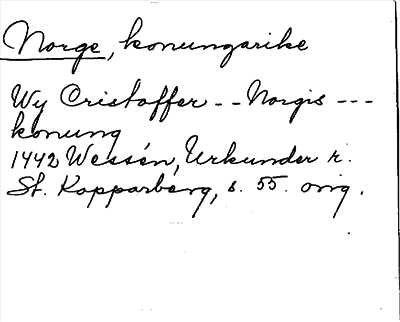 Norge, konungarike
Wy Cristoffer -- Norgis ---
konung
1442 Wessén, Urkunder r.
St. Kopparberg, s. 55. orig.